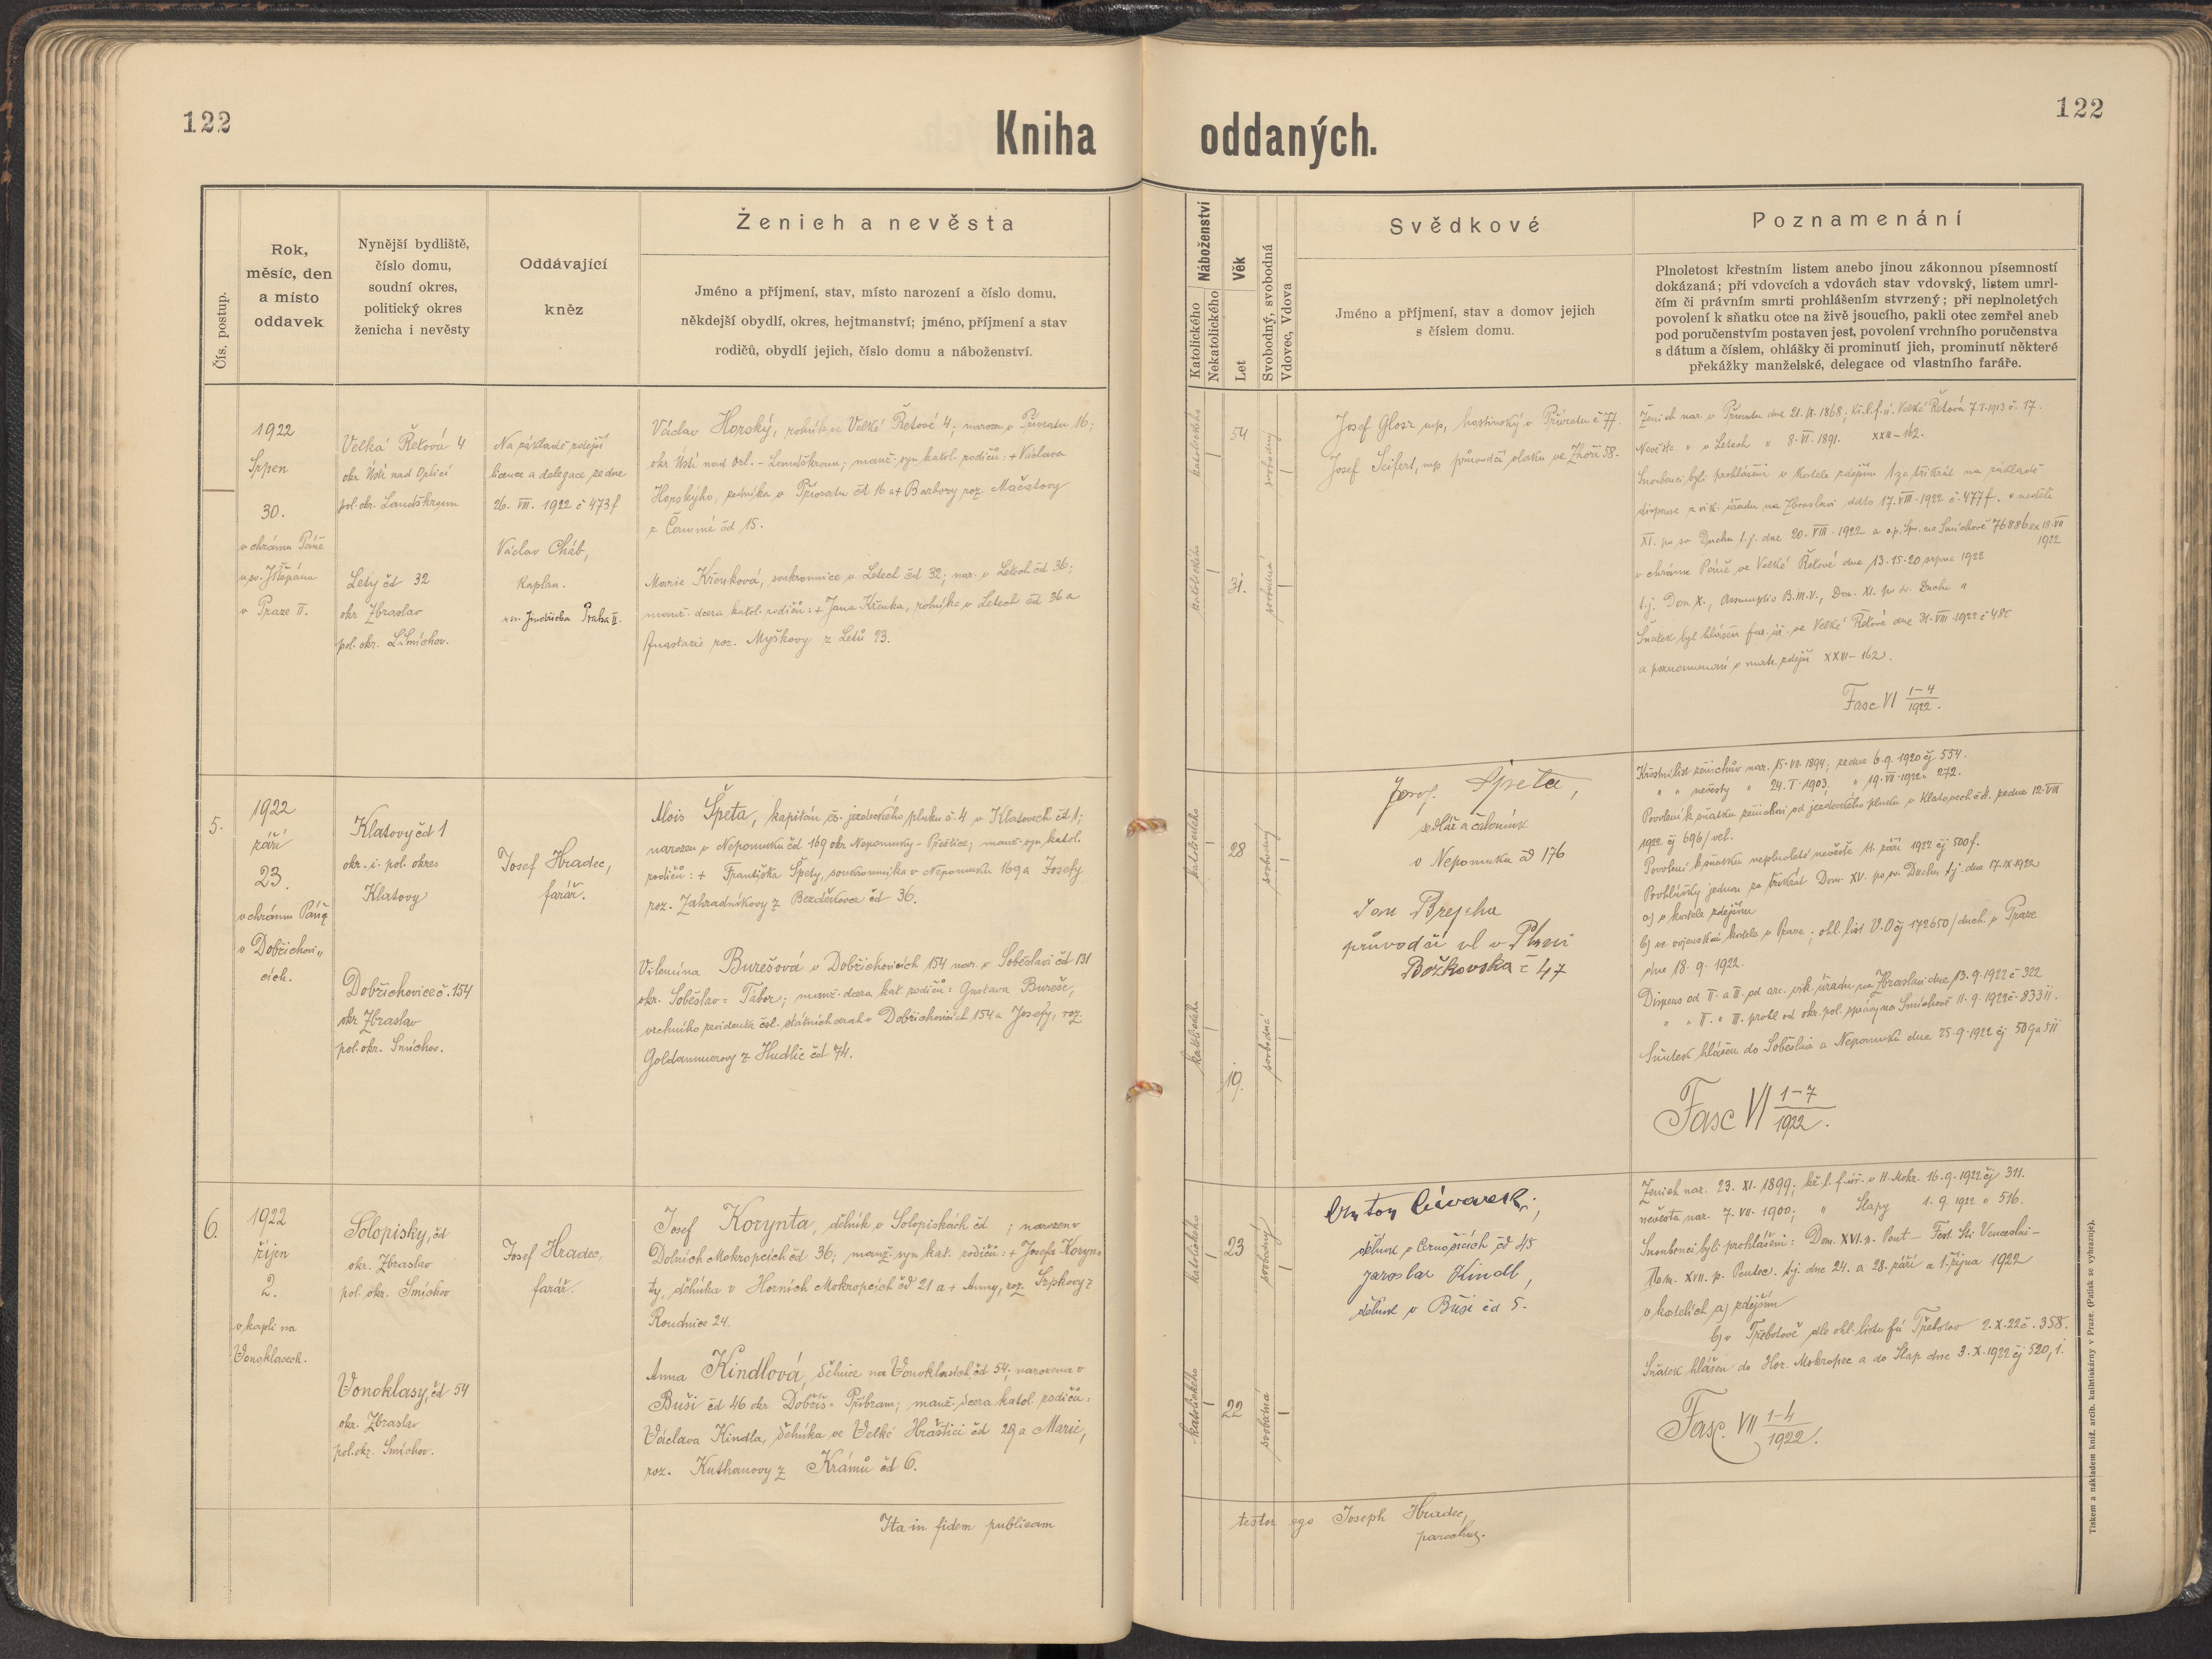 122
Kniha
oddaných.
122
Čís. postup.
Rok,
měsíc, den
a místo
oddavek
Nynější bydliště,
číslo domu,
soudní okres,
politický okres
ženicha i nevěsty
Oddávající
kněz
Ženich a nevěsta
Jméno a příjmení, stav, místo narození a číslo domu,
někdejší obydlí, okres, hejtmanství; jméno, příjmení a stav
rodičů, obydlí jejich, číslo domu a náboženství.
Náboženství
Katolického
Nekatolického
Věk
Let
Svobodný, svobodná
Vdovec, Vdova
Svědkové
Jméno a příjmení, stav a domov jejich
s číslem domu.
Poznamenání
Plnoletost křestním listem anebo jinou zákonnou písemností
dokázaná; při vdovcích a vdovách stav vdovský, listem umrl-
čím či právním smrti prohlášením stvrzený; při neplnoletých
povolení k sňatku otce na živě jsoucího, pakli otec zemřel aneb
pod poručenstvím postaven jest, povolení vrchního poručenstva
s dátum a číslem, ohlášky či prominutí jich, prominutí některé
překážky manželské, delegace od vlastního faráře.
1922
Srpen
30.
v chrámu Páně
u sv. Štěpána
v Praze II.
Velká Řetová 4
okr. Ústí nad Orlicí
pol. okr. Landškroun
Letý čd 32
okr. Zbraslav
pol. okr. Smíchov.
Na základě zdejší
licence a delegace ze dne
26. VIII. 1922 č 473f
Václav Cháb,
kaplan.
u sv. Jindřicha Praha II.
Václav Horský, rolník ve Velké Řetové 4; narozen v Přívratu 16;
okr. Ústí nad Orl. - Landškroun; manž. syn katol. rodičů: + Václava
Horského, rolníka v Přívratu čd 16 a + Barbory roz. Mačátovy
z Černumé čd 15.
Marie Křenková, soukromnice v Letech čd 32; nar. v Letech čd 36;
manž. dcera katol. rodičů: + Jana Křenka, rolníka v Letech čd 36 a
Anastazie roz. Myškovy z Letů 23.
katolického
54
svobodný
katolického
31.
svobodná
Josef Glosz mp, hostinský v Přívratu č 77.
Josef Seifert, mp průvodčí vlaku ve Zhoři 58.
Ženich nar. v Přívratu dne 21. IX. 1868; kř. l. f. ú. Velké Řetová 7. I. 1913 č. 17.
Nevěsta " v Letech " 8. VI. 1891. XXII-162.
Snoubenci byli prohlášeni v kostele zdejším 1 za třikrát na základě
dispense z vik. úřadu na Zbraslavi ddto 17. VIII. 1922 č. 477f. v neděli
XI. po sv. Duchu t. j. dne 20. VIII. 1922 a o. p. spr. na Smíchově 76886 ex 18. VII
1922
v chrámu Páně ve Velké Řetové dne 13. 15. 20 srpna 1922
t. j. Dom X., Assumptio B. M. V., Dom. XI. po sv. Duchu "
Sňatek byl hlášen far. úř. ve Velké Řetové dne 31. VIII 1922 č 482
a poznamenání v matr. zdejší XXII-162.
Fasc VI 1-4
1922.
5.
1922
září
23.
v chrámu Páně
v Dobřichovi„
cích.
Klatovy čd 1
okr. i. pol. okres
Klatovy
Dobřichovice č. 154
okr Zbraslav
pol. okr. Smíchov.
Josef Hradec,
farář.
Alois Špeta, kapitán čs. jezdeckého pluku č. 4 v Klatovech čd 1;
narozen v Nepomuku čd 169 okr Nepomucký - Přeštice; manž. syn katol.
rodičů: + Františka Špety, soukromníka v Nepomuku 169 a Josefy
roz. Zahradníkovy z Bezděkovce čd 36.
Vilemína Burešová v Dobřichovicích 154 nar. v Soběslavi čd 131
okr. Soběslav = Tábor; manž. dcera kat. rodičů: Gustava Bureše,
vrchního revidenta čsl. státních drah v Dobřichovicích 154 a Josefy, roz.
Goldammerovy z Hudlic čd 74.
katolického
28
svobodný
katolického
19.
svobodná
Josef Špeta,
sedlář a čalouník
v Nepomuku čd 176
Jan Brejcha
průvodčí vl v Plzni
Božkovska č 47
Křestní list ženichův nar. 15. VII. 1894; ze dne 6. 9. 1920 čj 554.
" " nevěsty " 24. I. 1903. " 19. VII. 1922 " 272.
Povolení k sňatku ženichovi od jezdeckého pluku v Klatovech č. 4. ze dne 12. VIII
1922 čj 696/vel.
Povolení k sňatku neplnoleté nevěstě 11. září 1922 čj 500f.
Prohlášky jednou za třikrát Dom. XV. po sv. Duchu t. j. dne 17. IX 1922
a) v kostele zdejším
b) ve vojenském kostele v Praze; ohl. list V. O čj 172650/duch. v Praze
dne 18. 9. 1922.
Dispens od II. a III. od arc. vik. úřadu na Zbraslavi dne 13. 9. 1922 č 322
" " II. a III. prohl od okr. pol. správy na Smíchově 11. 9. 1922 č. 83311.
Sňatek hlášen do Soběslavi a Nepomuku dne 25. 9. 1922 čj 509 a 511
Fasc VI 1-7
1922.
6.
1922
říjen
2.
v kapli na
Vonoklasech.
Solopisky, čd
okr. Zbraslav
pol. okr. Smíchov
Vonoklasy, čd 54
okr. Zbraslav
pol. okr. Smíchov.
Josef Hradec,
farář.
Josef Korynta, dělník v Solopiskách čd ; narozen v
Dolních Mokropcích čd 36; manž. syn kat. rodičů: + Josefa Koryn„
ty, dělníka v Horních Mokropcích čd 21 a + Anny, roz. Srpkovy z
Roudnice 24.
Anna Kindlová, dělnice na Vonoklasích čd 54; narozena v
Buši čd 46 okr Dobříš = Příbram; manž. dcera katol. rodičů:
Václava Kindla, dělníka ve Velké Hraštici čd 29 a Marie,
roz. Kuthanovy z Krámů čd 6.
katolického
23
svobodný
katolického
22
svobodná
Anton Cívarek,
dělník v Černošicích čd 45
Jaroslav Kindl,
dělník v Buši čd 5.
Ženich nar. 23. XI. 1899; kř. l. f. úř. v H. Mokr. 16. 9. 1922 čj 311.
nevěsta nar. 7. VII. 1900; " Slapy 1. 9. 1922 " 516.
Snoubenci byli prohlášeni: Dom. XVI. p. Pent - Fest. Sti Venceslai -
Dom. XVII. p. Pentec. t. j. dne 24. a 28. září a 1. října 1922
v kostelích a) zdejším
b) v Třebotově dle ohl. listu fú Třebotov 2. X. 22 č. 358.
Sňatek hlášen do Hor. Mokropec a do Slap dne 3. X. 1922 čj 520, 1.
Fasc. VII 1-4
1922.
Ita in fidem publicam
testor ego Joseph Hradec,
parochus.
Tiskem a nákladem kníž. arcib. knihtiskárny v Praze. (Patisk se vyhrazuje).